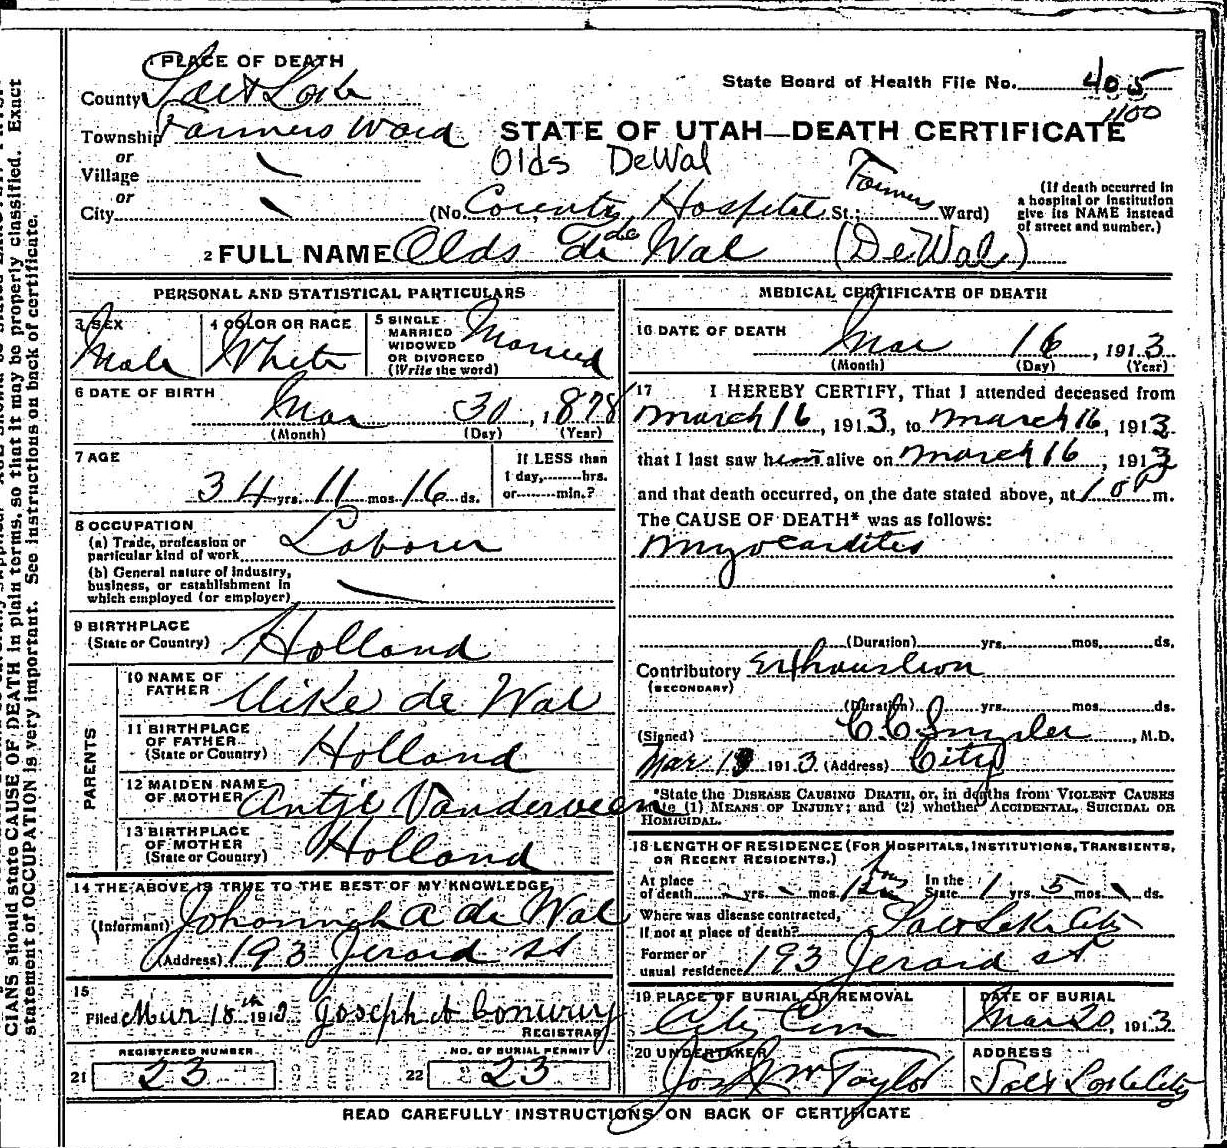 CIANS should state CAUSE OF DEATH in plain terms, so that it may be properly classified. Exact
statement of OCCUPATION is very important. See instructions on back of certificate.
1 PLACE OF DEATH
County Salt Lake
State Board of Health File No. 405
1100
Township Farmers Ward
STATE OF UTAH—DEATH CERTIFICATE
or
Village
Olds DeWal
or
City
(No. County Hospital St.; Farmers Ward)
(If death occurred in
a hospital or institution
give its NAME instead
of street and number.)
2 FULL NAME Olds de Wal (DeWal)
PERSONAL AND STATISTICAL PARTICULARS
3 SEX Male
4 COLOR OR RACE White
5 SINGLE
MARRIED
WIDOWED
OR DIVORCED
(Write the word) Married
6 DATE OF BIRTH
Mar 30, 1878
(Month) (Day) (Year)
7 AGE
34 yrs. 11 mos. 16 ds.
If LESS than
1 day, hrs.
or min.?
8 OCCUPATION
(a) Trade, profession or
particular kind of work Laborer
(b) General nature of industry,
business, or establishment in
which employed (or employer)
9 BIRTHPLACE
(State or Country) Holland
PARENTS
10 NAME OF
FATHER Uike de Wal
11 BIRTHPLACE
OF FATHER
(State or Country) Holland
12 MAIDEN NAME
OF MOTHER Antje Vanderveen
13 BIRTHPLACE
OF MOTHER
(State or Country) Holland
14 THE ABOVE IS TRUE TO THE BEST OF MY KNOWLEDGE
(Informant) A de Wal
(Address) 193 Jerard st
15
Filed Mar 18th 1913 Joseph A Conway
REGISTRAR
REGISTERED NUMBER
21 23
NO. OF BURIAL PERMIT
22 23
MEDICAL CERTIFICATE OF DEATH
16 DATE OF DEATH
Mar 16, 1913
(Month) (Day) (Year)
17 I HEREBY CERTIFY, That I attended deceased from
March 16, 1913, to March 16, 1913
that I last saw him alive on March 16, 1913
and that death occurred, on the date stated above, at m.
The CAUSE OF DEATH* was as follows:
Myocarditis
(Duration) yrs. mos. ds.
Contributory Exhaustion
(SECONDARY)
(Duration) yrs. mos. ds.
(Signed) C C Snyder, M.D.
Mar 1913 (Address) City
*State the DISEASE CAUSING DEATH, or, in deaths from VIOLENT CAUSES
state (1) MEANS OF INJURY; and (2) whether ACCIDENTAL, SUICIDAL OR
HOMICIDAL.
18 LENGTH OF RESIDENCE (FOR HOSPITALS, INSTITUTIONS, TRANSIENTS,
OR RECENT RESIDENTS.)
At place
of death yrs. mos. In the
State 1 yrs. 5 mos. ds.
Where was disease contracted,
if not at place of death? Salt Lake City
Former or
usual residence 193 Jerard st
19 PLACE OF BURIAL OR REMOVAL
City Cem
DATE OF BURIAL
Mar 20, 1913
20 UNDERTAKER
Jos Wm Taylor
ADDRESS
Salt Lake City
READ CAREFULLY INSTRUCTIONS ON BACK OF CERTIFICATE